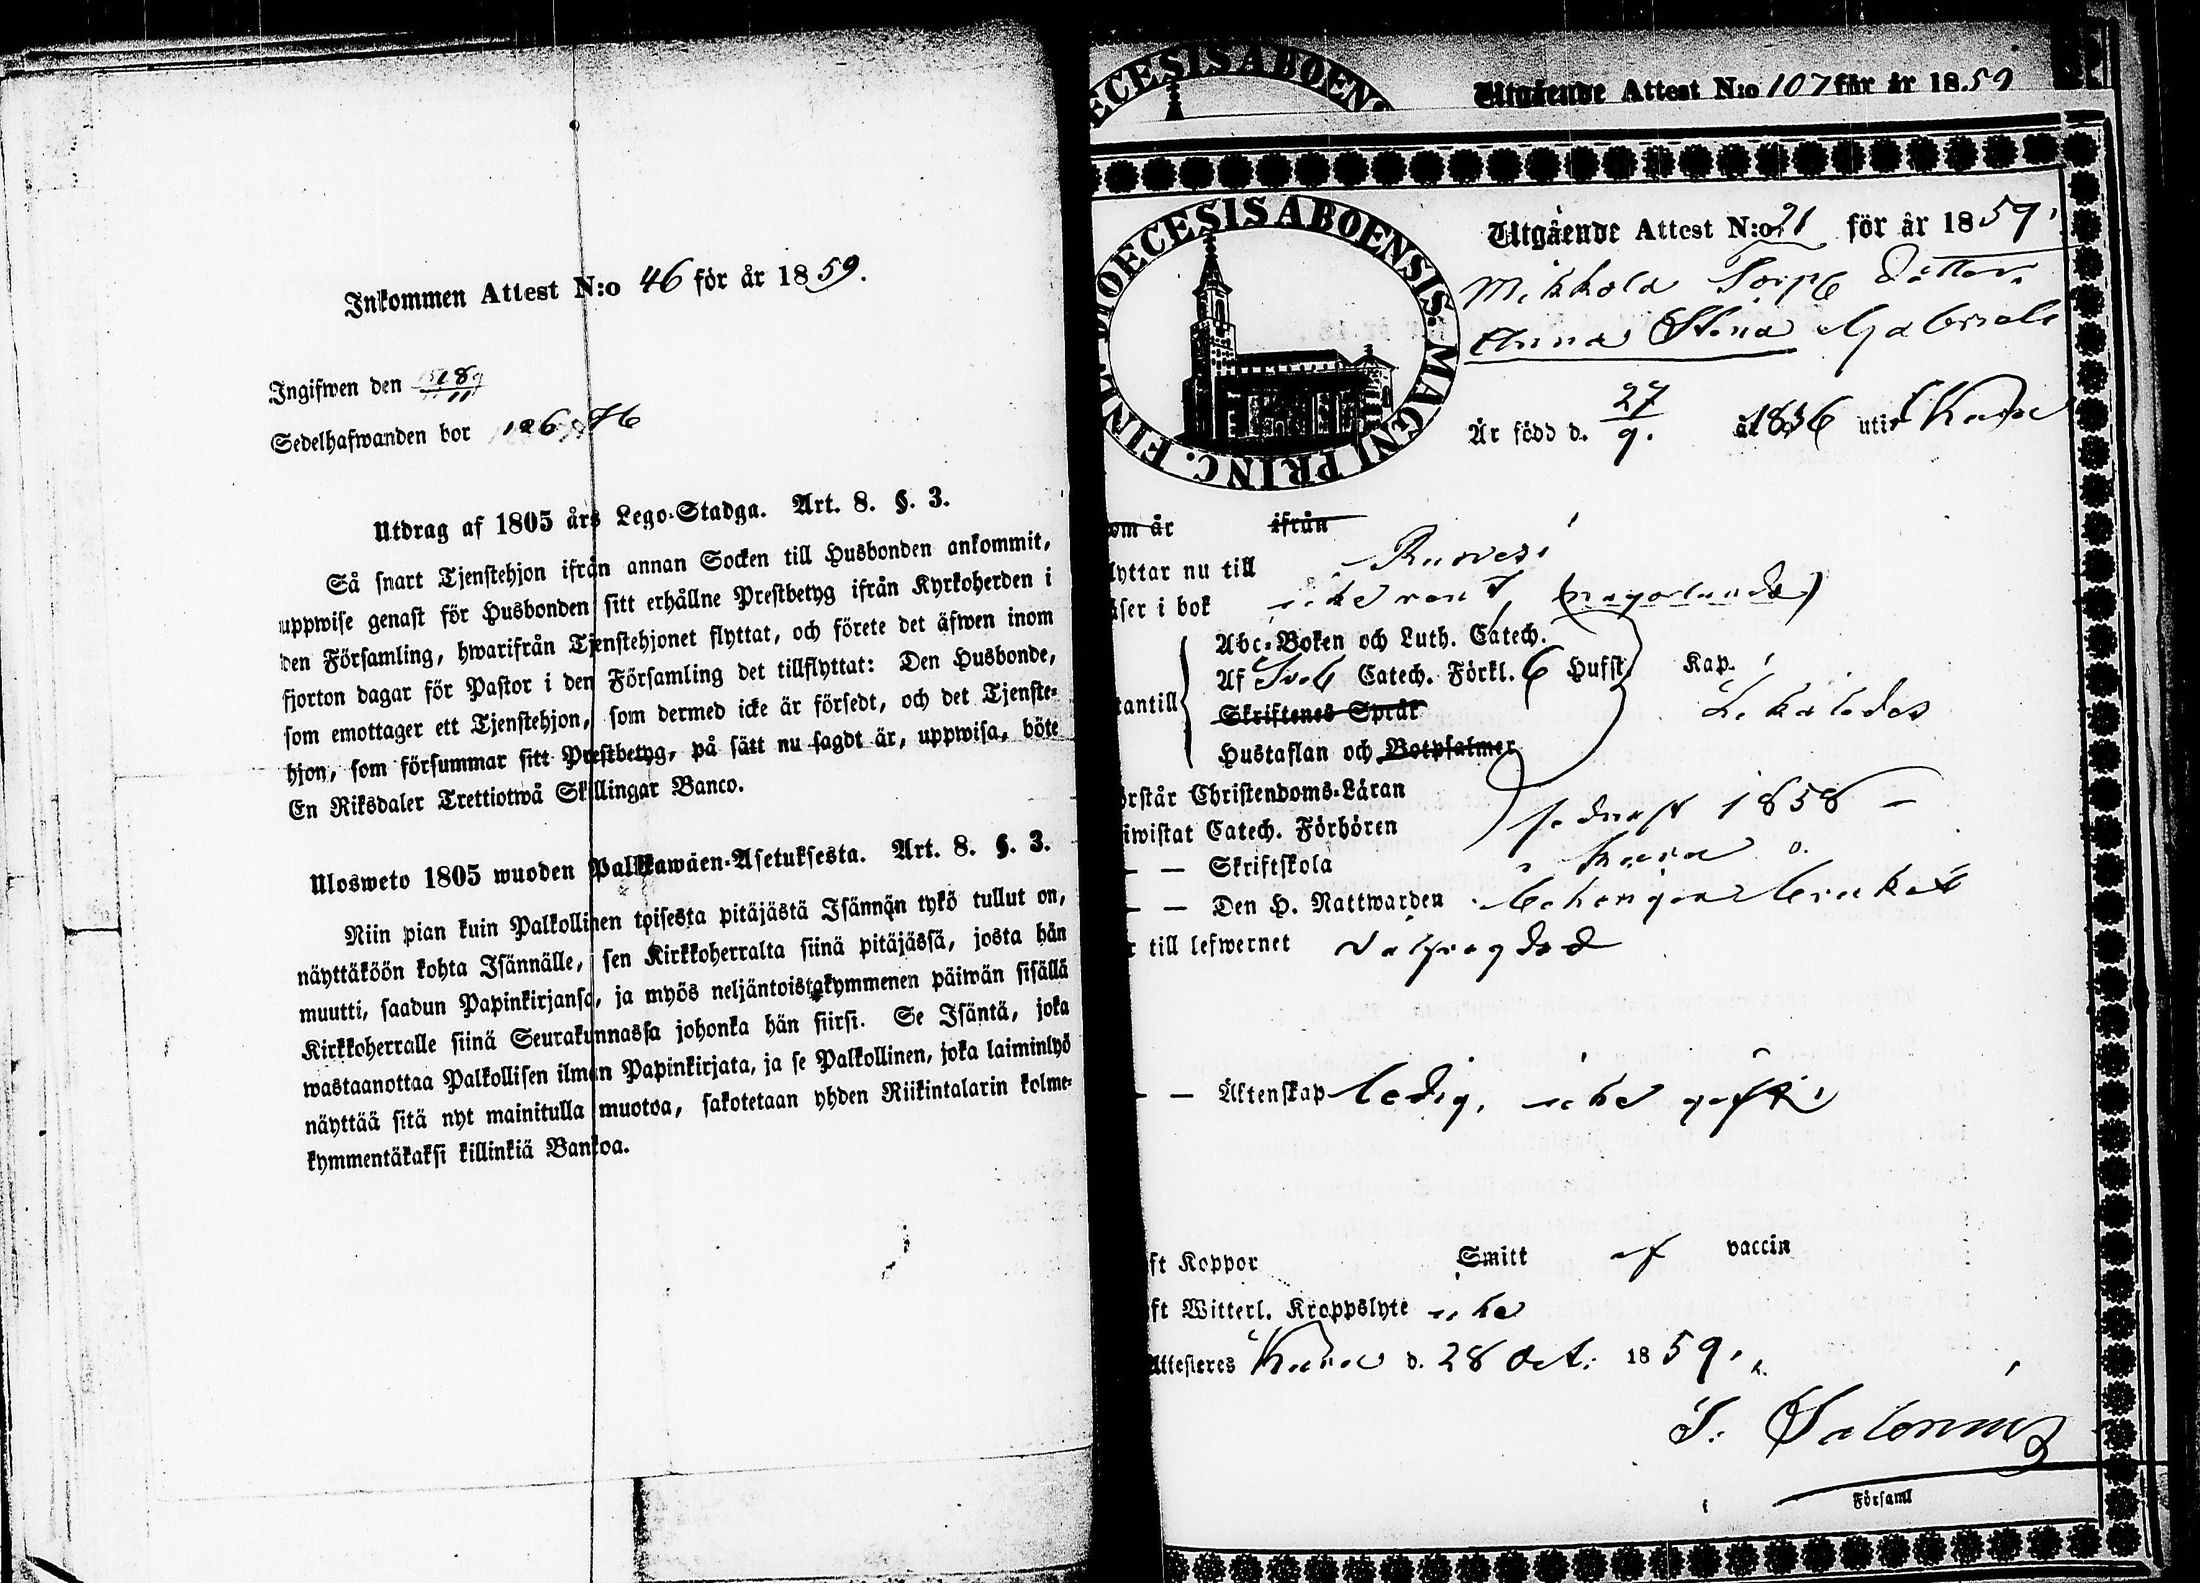 Inkommen Attest N:o 46 för år 1859.
Ingifwen den
Sedelhafwanden bor
Utdrag af 1805 års Lego-Stadga. Art. 8. §. 3.
Så snart Tjenstehjon ifrån annan Socken till Husbonden ankommit,
uppwise genast för Husbonden sitt erhållne Prestbetyg ifrån Kyrkoherden i
den Församling, hwarifrån Tjenstehjonet flyttat, och förete det äfwen inom
fjorton dagar för Pastor i den Församling det tillflyttat: Den Husbonde,
som emottager ett Tjenstehjon, som dermed icke är försedt, och det Tjenste-
hjon, som försummar sitt Prestbetyg, på sätt nu sagdt är, uppwisa, böte
En Riksdaler Trettiotwå Skillingar Banco.
Ulosweto 1805 wuoden Palkkawäen-Asetuksesta. Art. 8. §. 3.
Niin pian kuin Palkollinen toisesta pitäjästä Isännän tykö tullut on,
näyttäköön kohta Isännälle, sen Kirkkoherralta siinä pitäjässä, josta hän
muutti, saadun Papinkirjansa, ja myös neljäntoistakymmenen päiwän sisällä
Kirkkoherralle siinä Seurakunnassa johonka hän siirsi. Se Isäntä, joka
wastaanottaa Palkollisen ilman Papinkirjata, ja se Palkollinen, joka laiminlyö
näyttää sitä nyt mainitulla muotoa, sakotetaan yhden Riikintalarin kolme-
kymmentäkaksi killinkiä Bankoa.
ECESIS ABOENS
Utgående Attest N:o 107 för år 1859
DIOECESIS ABOENSIS. MAGNI PRINC. FINL.
Utgående Attest N:o 21 för år 1859.
Mikkola Torp dotter
Anna Stina Gabriels
Är född d. 27/9. år 1836 uti Karu
om är ifrån
lyttar nu till Ruovesi
äser i bok
Abc-Boken och Luth. Catech.
Af Sveb Catech. Förkl. 6 Hufst. Kap.
tantill
Skriftenes Språk
Hustaflan och Botpsalmer
örstår Christendoms-Läran
iwistat Catech. Förhören sednast 1858
— — Skriftskola
— — Den H. Nattwarden
r till lefwernet
— — Äktenskap ledig, icke gift
ft Koppor Smitt af vaccin
ft Witterl. Kroppslyte icke
Attesteres Karu d. 28 Oct. 1859.
Församl